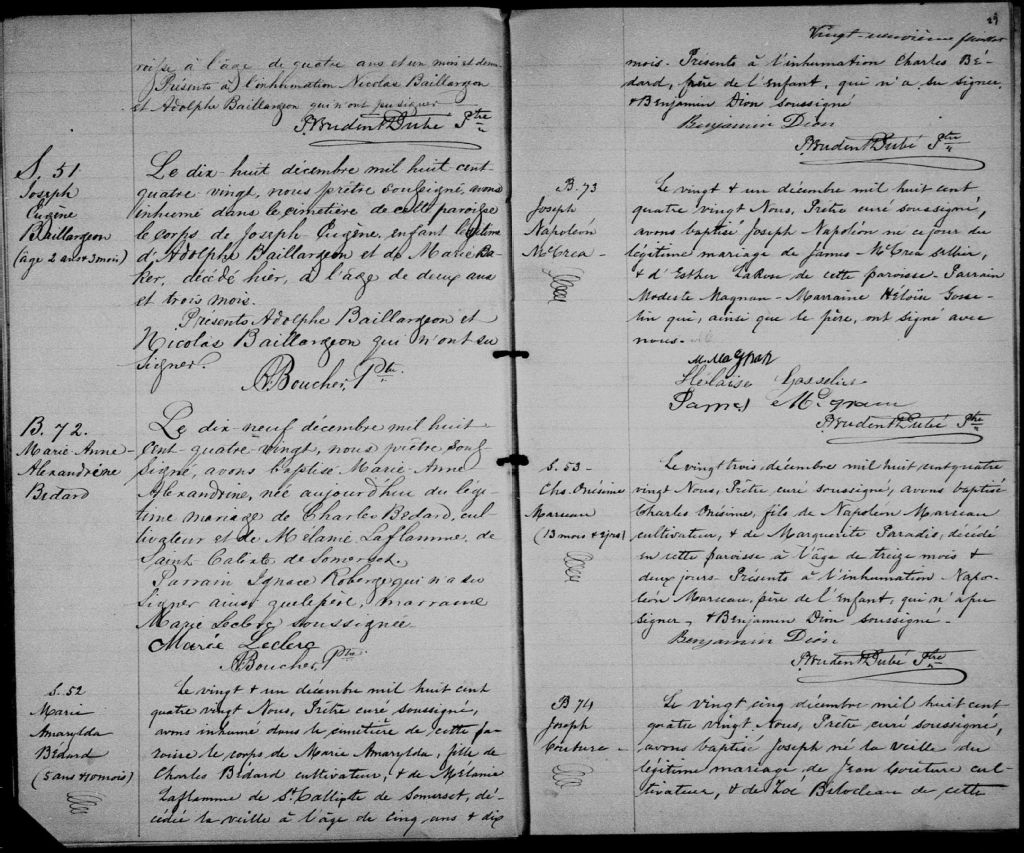 roisse à l'âge de quatre ans et un mois et demi
Présents à l'inhumation Nicolas Baillargeon
et Adolphe Baillargeon qui n'ont pu signer
P. Prudent Dubé Ptre
S. 51
Joseph
Eugène
Baillargeon
(âge 2 ans & 3 mois)
Le dix-huit décembre mil huit cent
quatre vingt, nous prêtre soussigné, avons
inhumé dans le cimetière de cette paroisse
le corps de Joseph Eugène, enfant légitime
d'Adolphe Baillargeon et de Marie Ba-
ker, décédé hier, à l'âge de deux ans
et trois mois.
Présents Adolphe Baillargeon et
Nicolas Baillargeon qui n'ont su
signer.
A Boucher, Ptre
B. 72.
Marie Anne-
Alexandrine
Bedard
Le dix-neuf décembre mil huit
cent-quatre vingt, nous prêtre sous-
signé, avons baptisé Marie Anne
Alexandrine, née aujourd'hui du légi-
time mariage de Charles Bedard, cul-
tivateur et de Mélanie Laflamme, de
Saint Calixte de Somerset.
Parrain Ignace Roberge qui n'a su
signer ainsi que le père, marraine
Marie Leclerc soussignée.
Marie Leclerc
A Boucher, Ptre
S. 52
Marie
Amarylda
Bédard
(5 ans & 10 mois)
Le vingt & un décembre mil huit cent
quatre vingt Nous, Prêtre curé soussigné,
avons inhumé dans le cimetière de cette pa-
roisse le corps de Marie Amarylda, fille de
Charles Bédard cultivateur, & de Mélanie
Laflamme de St. Callixte de Somerset, dé-
cédée la veille à l'âge de cinq ans & dix
29
Vingt-neuvième feuillet
mois. Présents à l'inhumation Charles Bé-
dard, père de l'enfant, qui n'a su signer,
& Benjamin Dion soussigné
Benjamin Dion
P. Prudent Dubé Ptre
B. 73
Joseph
Napoléon
McCrea
Le vingt & un décembre mil huit cent
quatre vingt Nous, Prêtre curé soussigné,
avons baptisé Joseph Napoléon né ce jour du
légitime mariage de James McCrea sellier,
& d'Esther LaRose de cette paroisse. Parrain
Modeste Magnan - Marraine Héloïse Gosse-
lin qui, ainsi que le père, ont signé avec
nous.
M Magnan
Héloïse Gosselin
James
P. Prudent Dubé Ptre
S. 53 -
Chs. Onésime
Marceau
(13 mois & 2 jrs)
Le vingt trois décembre mil huit cent quatre
vingt Nous, Prêtre curé soussigné, avons baptisé
Charles Onésime, fils de Napoléon Marceau
cultivateur, & de Marguerite Paradis, décédé
en cette paroisse à l'âge de treize mois &
deux jours. Présents à l'inhumation Napo-
léon Marceau, père de l'enfant, qui n'a pu
signer, & Benjamin Dion soussigné.
Benjamin Dion
P. Prudent Dubé Ptre
B 74
Joseph
Couture
Le vingt cinq décembre mil huit cent
quatre vingt Nous, Prêtre curé soussigné,
avons baptisé Joseph né la veille du
légitime mariage de Jean Couture cul-
tivateur, & de Zoé Bilodeau de cette